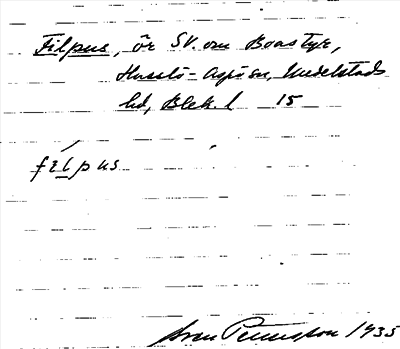 Filpus, ör SV. om Boastyr,
Hasslö-Aspöan, Medelstads
hd, Blek. l 15
fílpus
Sven Pettersson 1935